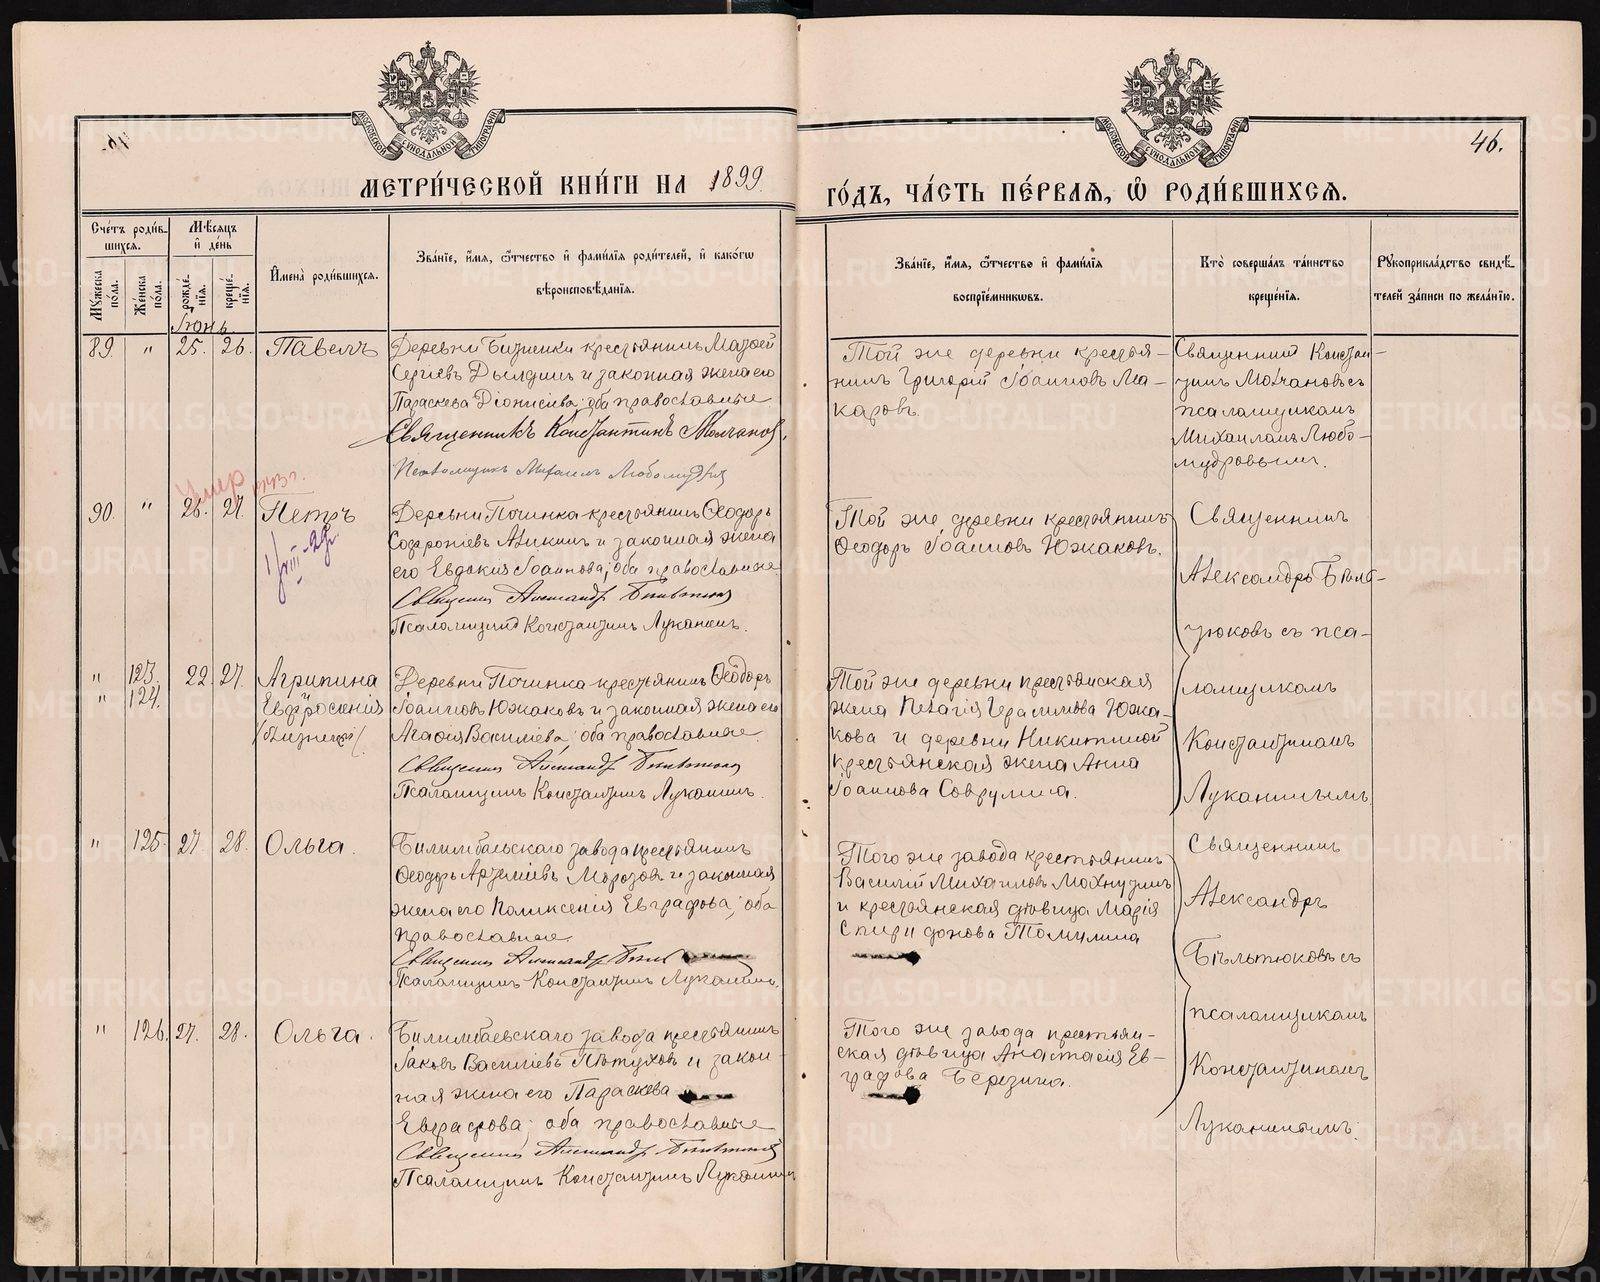 МОСКОВСКОЙ СУНОДАЛЬНОЙ ТИПОГРАФІИ
МОСКОВСКОЙ СУНОДАЛЬНОЙ ТИПОГРАФІИ
46.
МЕТРИ́ЧЕСКОЙ КНИ́ГИ НА 1899
ГО́ДЪ, ЧА́СТЬ ПЕ́РВАЯ, Ѽ РОДИ́ВШИХСЯ.
Сче́тъ роди́вшихся.
Мꙋжеска по́ла.
Же́нска по́ла.
Мѣ́сяцъ и҆ де́нь
рожде́нїя.
креще́нїя.
И҆мена̀ роди́вшихся.
Зва́нїе, и҆́мя, ѻ҆́тчество и҆ фами́лїя роди́телей, и҆ како́гѡ
вѣроисповѣ́данїя.
Зва́нїе, и҆́мя, ѻ҆́тчество и҆ фами́лїя
воспрїе́мникѡвъ.
Кто̀ соверша́лъ та́инство
креще́нїя.
Рꙋкоприкла́дство свидѣ́-
телей за́писи по жела́нїю.
Іюнь.
89. " 25. 26. Павелъ
Деревни Битимки крестьянинъ Матѳей
Сергіевъ Дылдинъ и законная жена его
Параскева Діонисіева; оба православные
Священникъ Константинъ Молчановъ.
Псаломщикъ Михаилъ Любомудровъ
Той же деревни крестья-
нинъ Григорій Іоанновъ Ма-
каровъ.
Священникъ Констан-
тинъ Молчановъ съ
псаломщикомъ
Михаиломъ Любо-
мудровымъ.
Умер
90. " 26. 27. Петръ
Деревни Починка крестьянинъ Ѳеодоръ
Софроніевъ Аликинъ и законная жена
его Евдокія Іоаннова; оба православные
Священникъ Александръ Бѣльтюковъ
Псаломщикъ Константинъ Луканинъ.
Той же деревни крестьянинъ
Ѳеодоръ Іоанновъ Южаковъ.
Священникъ
Александръ Бѣль-
тюковъ съ пса-
ломщикомъ
Константиномъ
Луканинымъ.
" 123. 22. 27. Агрипина
" 124. Евфросинія
/близнецы/
Деревни Починка крестьянинъ Ѳеодоръ
Іоанновъ Южаковъ и законная жена его
Агафія Василіева; оба православные.
Священникъ Александръ Бѣльтюковъ
Псаломщикъ Константинъ Луканинъ.
Той же деревни крестьянская
жена Пелагія Герасимова Южа-
кова и деревни Никитиной
крестьянская жена Анна
Іоаннова Соврулина.
" 125. 27. 28. Ольга.
Билимбаевскаго завода крестьянинъ
Ѳеодоръ Артеміевъ Морозовъ и законная
жена его Поликсенія Евграфова; оба
православные.
Священникъ Александръ
Псаломщикъ Константинъ Луканинъ.
Того же завода крестьянинъ
Василій Михаиловъ Махнутинъ
и крестьянская дѣвица Марія
Спиридонова Томилина
Священникъ
Александръ
Бѣльтюковъ съ
псаломщикомъ
Константиномъ
Луканинымъ.
" 126. 27. 28. Ольга.
Билимбаевскаго завода крестьянинъ
Іаковъ Василіевъ Пѣтуховъ и закон-
ная жена его Параскева
Евграфова; оба православные
Священникъ Александръ Бѣльтюковъ
Псаломщикъ Константинъ Луканинъ
Того же завода крестьян-
ская дѣвица Анастасія Ев-
графова Березина.
METRIKI.GASO-URAL.RU